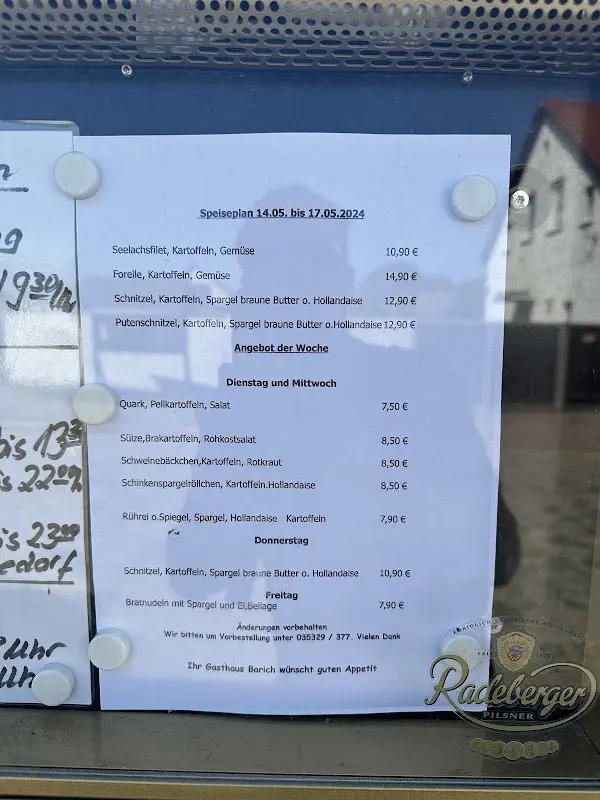 Speiseplan 14.05. bis 17.05.2024
Seelachsfilet, Kartoffeln, Gemüse 10,90 €
Forelle, Kartoffeln, Gemüse 14,90 €
Schnitzel, Kartoffeln, Spargel braune Butter o. Hollandaise 12,90 €
Putenschnitzel, Kartoffeln, Spargel braune Butter o.Hollandaise 12,90 €
Angebot der Woche
Dienstag und Mittwoch
Quark, Pellkartoffeln, Salat 7,50 €
Sülze,Brakartoffeln, Rohkostsalat 8,50 €
Schweinebäckchen,Kartoffeln, Rotkraut 8,50 €
Schinkenspargelröllchen, Kartoffeln.Hollandaise 8,50 €
Rührei o.Spiegel, Spargel, Hollandaise Kartoffeln 7,90 €
Donnerstag
Schnitzel, Kartoffeln, Spargel braune Butter o. Hollandaise 10,90 €
Freitag
Bratnudeln mit Spargel und Ei,Beilage 7,90 €
Änderungen vorbehalten
Wir bitten um Vorbestellung unter 035329 / 377. Vielen Dank
Ihr Gasthaus Barich wünscht guten Appetit
930
bis 13
22
23
Uhr
Radeberger
PILSNER